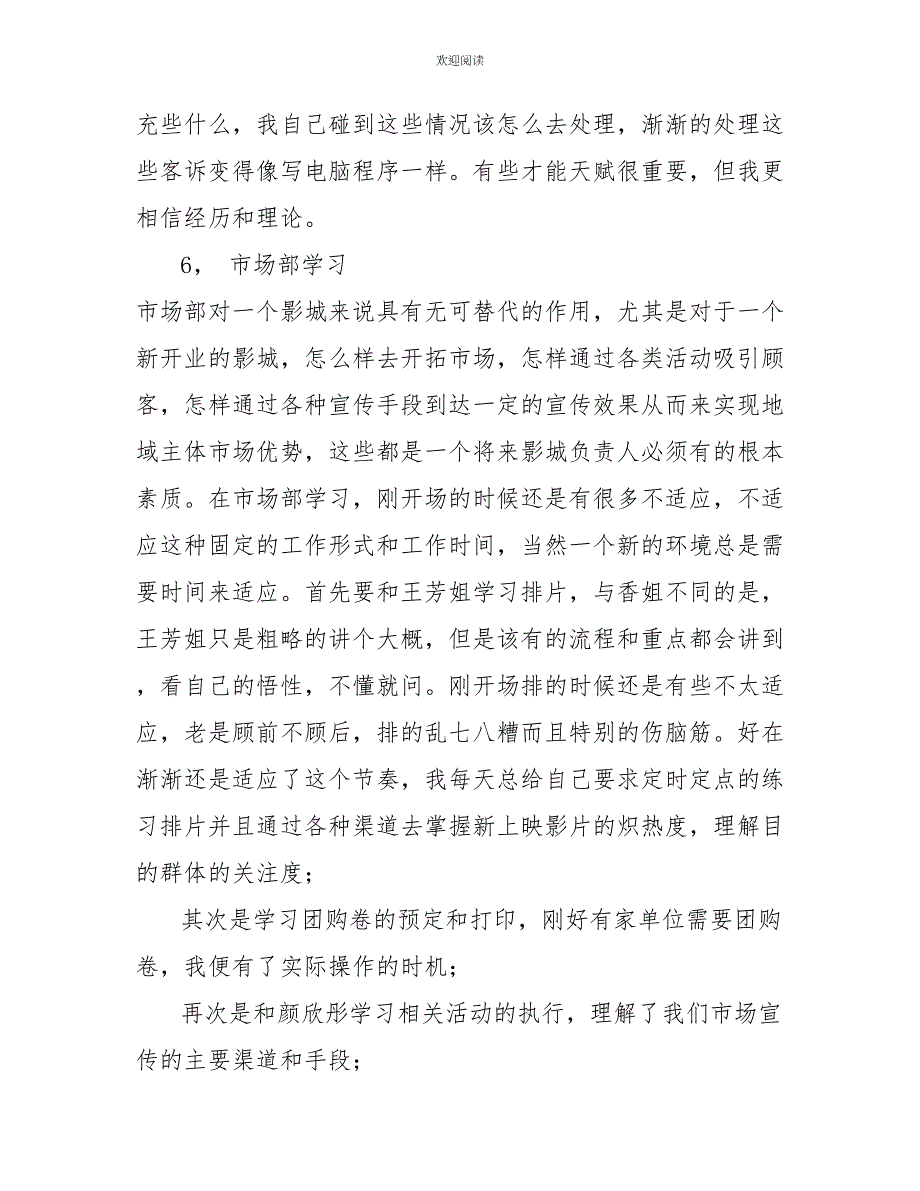 欢迎阅读
充些什么，我自己碰到这些情况该怎么去处理，渐渐的处理这
些客诉变得像写电脑程序一样。有些才能天赋很重要，但我更
相信经历和理论。
6， 市场部学习
市场部对一个影城来说具有无可替代的作用，尤其是对于一个
新开业的影城，怎么样去开拓市场，怎样通过各类活动吸引顾
客，怎样通过各种宣传手段到达一定的宣传效果从而来实现地
域主体市场优势，这些都是一个将来影城负责人必须有的根本
素质。在市场部学习，刚开场的时候还是有很多不适应，不适
应这种固定的工作形式和工作时间，当然一个新的环境总是需
要时间来适应。首先要和王芳姐学习排片，与香姐不同的是，
王芳姐只是粗略的讲个大概，但是该有的流程和重点都会讲到
，看自己的悟性，不懂就问。刚开场排的时候还是有些不太适
应，老是顾前不顾后，排的乱七八糟而且特别的伤脑筋。好在
渐渐还是适应了这个节奏，我每天总给自己要求定时定点的练
习排片并且通过各种渠道去掌握新上映影片的炽热度，理解目
的群体的关注度；
其次是学习团购卷的预定和打印，刚好有家单位需要团购
卷，我便有了实际操作的时机；
再次是和颜欣彤学习相关活动的执行，理解了我们市场宣
传的主要渠道和手段；